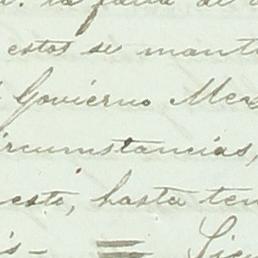 la falta de
estos se mant
Gobierno Mex
ircumstancias,
esto, hasta ten